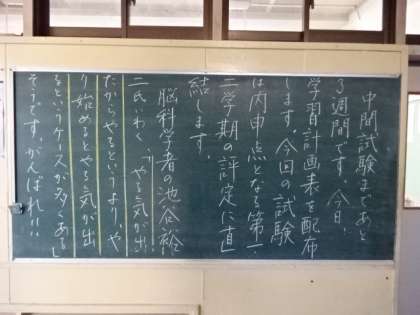 中間試験まであと
3週間です。今日、
学習計画表を配布
します。今回の試験
は内申点となる第一・
二学期の評定に直
結します。
脳科学者の池谷裕
二氏いわく、「やる気が出
たからやるというより、や
り始めるとやる気が出
るというケースが多くある」
そうです。がんばれ!!